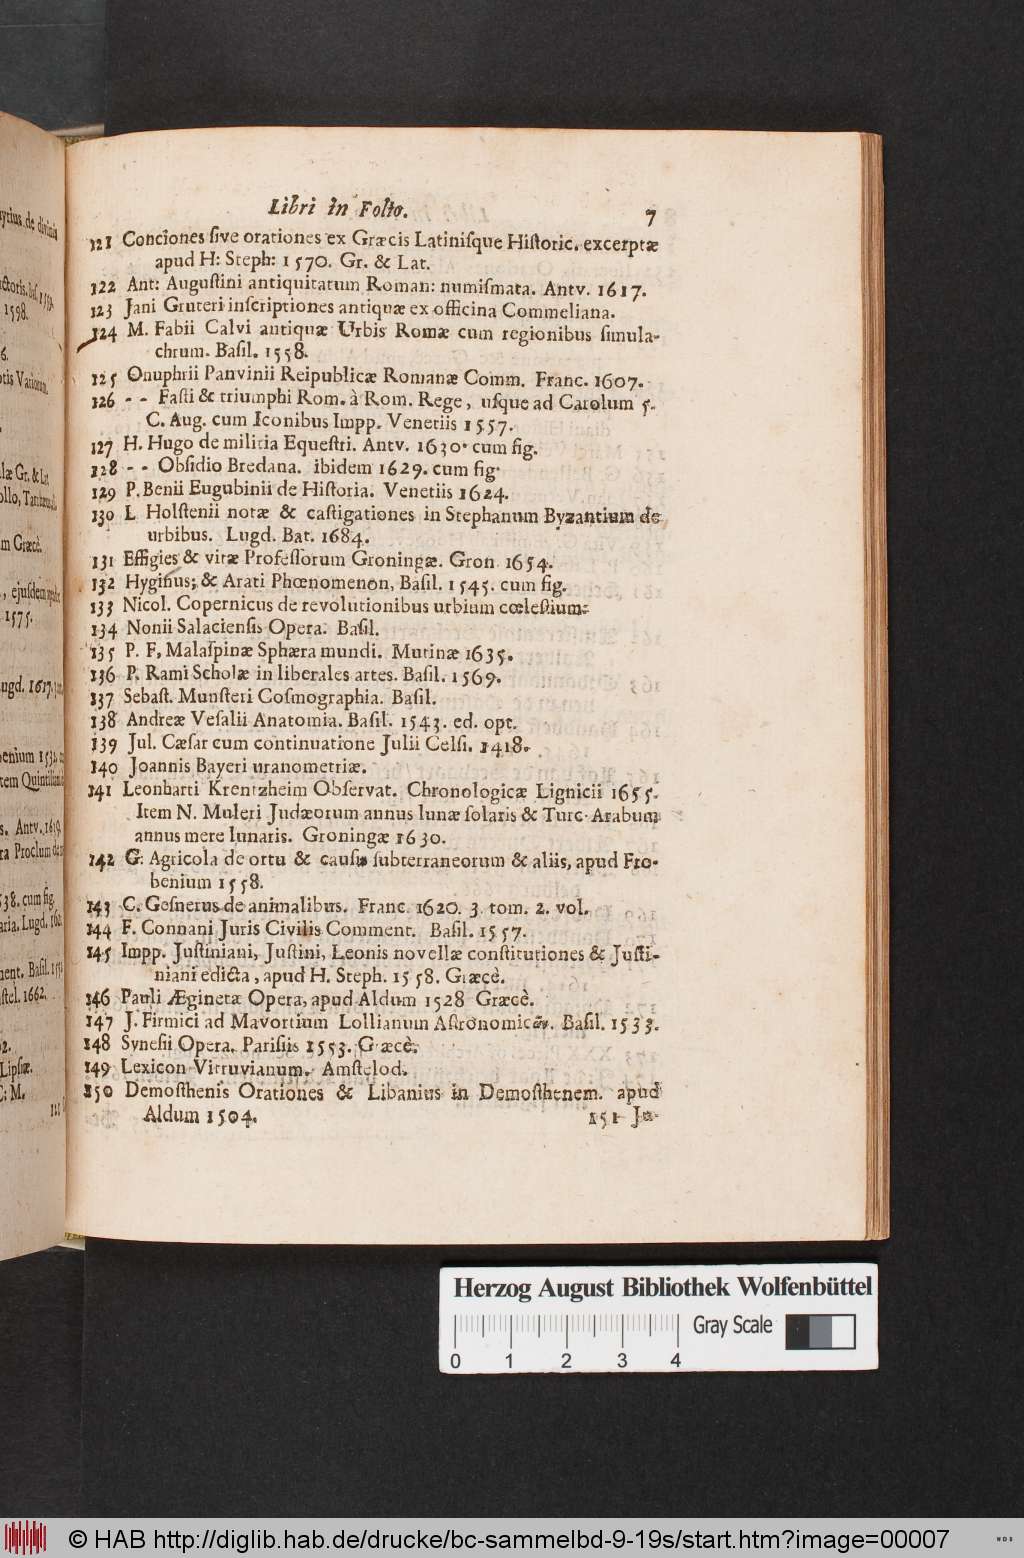 Libri in Folio. 7
121 Conciones sive orationes ex Græcis Latinisque Historic. excerptæ
apud H: Steph: 1570. Gr. & Lat.
122 Ant: Augustini antiquitatum Roman: numismata. Antv. 1617.
123 Jani Gruteri inscriptiones antiquæ ex officina Commeliana.
124 M. Fabii Calvi antiquæ Urbis Romæ cum regionibus simula-
chrum. Basil. 1558.
125 Onuphrii Panvinii Reipublicæ Romanæ Comm. Franc. 1607.
126 - - Fasti & triumphi Rom. à Rom. Rege, usque ad Carolum 5.
C. Aug. cum Iconibus Impp. Venetiis 1557.
127 H. Hugo de militia Equestri. Antv. 1630. cum fig.
128 - - Obsidio Bredana. ibidem 1629. cum fig.
129 P. Benii Eugubinii de Historia. Venetiis 1624.
130 L Holstenii notæ & castigationes in Stephanum Byzantium de
urbibus. Lugd. Bat. 1684.
131 Effigies & vitæ Professorum Groningæ. Gron 1654.
132 Hyginus; & Arati Phœnomenon, Basil. 1545. cum fig.
133 Nicol. Copernicus de revolutionibus urbium cœlestium.
134 Nonii Salaciensis Opera. Basil.
135 P. F, Malaspinæ Sphæra mundi. Mutinæ 1635.
136 P. Rami Scholæ in liberales artes. Basil. 1569.
137 Sebast. Munsteri Cosmographia. Basil.
138 Andreæ Vesalii Anatomia. Basil. 1543. ed. opt.
139 Jul. Cæsar cum continuatione Julii Celsi. 1418.
140 Joannis Bayeri uranometriæ.
141 Leonharti Krentzheim Observat. Chronologicæ Lignicii 1655.
Item N. Muleri Judæorum annus lunæ solaris & Turc. Arabum
annus mere lunaris. Groningæ 1630.
142 G. Agricola de ortu & causis subterraneorum & aliis, apud Fro-
benium 1558.
143 C. Gesnerus de animalibus. Franc. 1620. 3. tom. 2. vol.
144 F. Connani Juris Civilis Comment. Basil. 1557.
145 Impp. Justiniani, Justini, Leonis novellæ constitutiones & Justi-
niani edicta, apud H. Steph. 1558. Græcè.
146 Pauli Æginetæ Opera, apud Aldum 1528 Græcè.
147 J. Firmici ad Mavortium Lollianum Astronomicων. Basil. 1533.
148 Synesii Opera. Parisiis 1553. Græcè.
149 Lexicon Vitruvianum. Amstelod.
150 Demosthenis Orationes & Libanius in Demosthenem. apud
Aldum 1504. 151 Ju-
Herzog August Bibliothek Wolfenbüttel
Gray Scale
0 1 2 3 4
© HAB http://diglib.hab.de/drucke/bc-sammelbd-9-19s/start.htm?image=00007